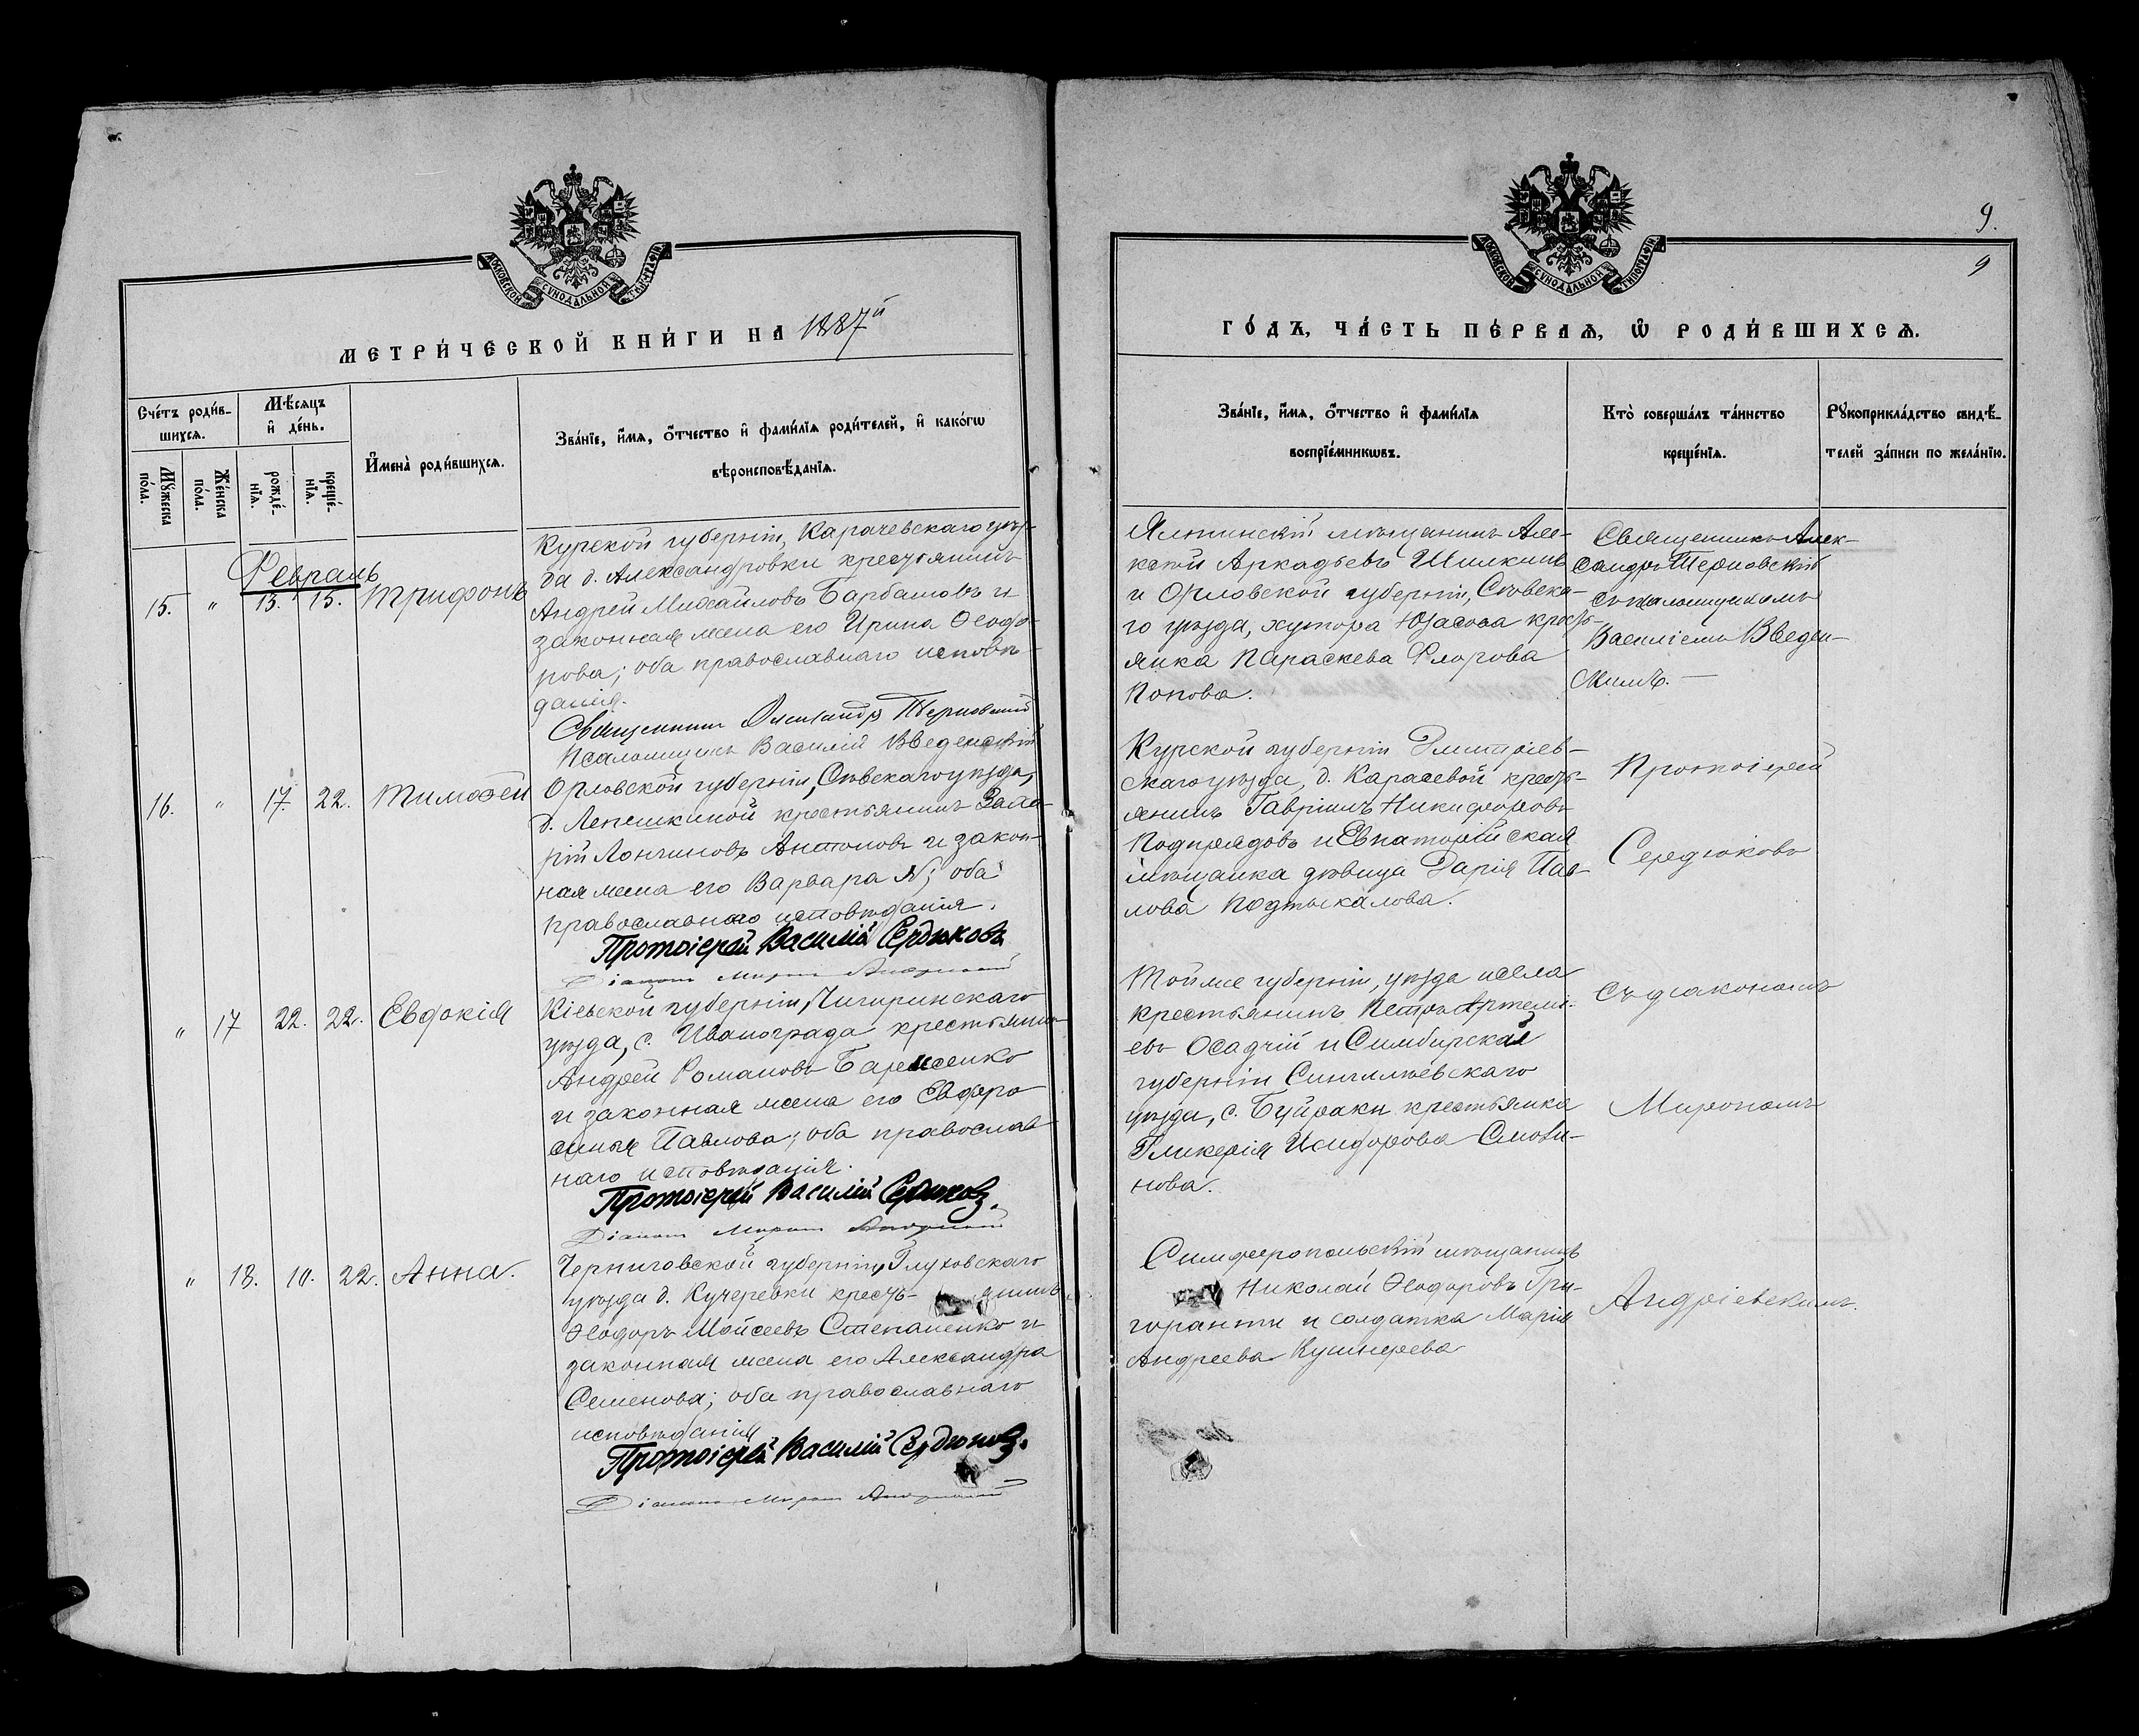 МОСКОВСКОЙ СУНОДАЛЬНОЙ ТИПОГРАФІИ
МЕТРИ́ЧЕСКОЙ КНИ́ГИ НА 1887й
Сче́тъ роди́в-
шихся.
Мѣ́сяцъ
и҆ де́нь.
Му́жеска
по́ла.
Же́нска
по́ла.
рожде́-
нїя.
креще́-
нїя.
И҆мена̀ роди́вшихся.
Зва́нїе, и҆́мя, ѻ҆́тчество и҆ фами́лїя роди́телей, и҆ како́гѡ
вѣроисповѣ́данїя.
Февраль
15. " 13. 15. Трифонъ
Курской губерніи, Карачевскаго уѣз-
да д. Александровки крестьянинъ
Андрей Михайловъ Барбашовъ и
законная жена его Ирина Ѳеодо-
рова; оба православнаго исповѣ-
данія.
Священникъ Александръ Терновскій
Псаломщикъ Василій Введенскій
16. " 17. 22. Тимоѳей
Орловской губерніи, Сѣвскаго уѣзда,
д. Лепешкиной крестьянинъ Заха-
рій Лончиновъ Антоновъ и закон-
ная жена его Варвара N; оба
православнаго исповѣданія.
Протоіерей Василій Сердюковъ
Діаконъ Миронъ
" 17 22. 22. Евдокія
Кіевской губерніи, Чигиринскаго
уѣзда, с. Ивонограда крестьянинъ
Андрей Романовъ
и законная жена его Евфро
синья Павлова; оба православ
наго исповѣданія.
Протоіерей Василій Сердюковъ.
Діаконъ Миронъ
" 18. 10. 22. Анна.
Черниговской губерніи, Глуховскаго
уѣзда д. Кучеревки кресть- янинъ
Ѳеодоръ Мойсеевъ Степаненко и
законная жена его Александра
Семенова; оба православнаго
исповѣданія
Протоіерей Василій Сердюковъ.
Діаконъ Миронъ
9.
9
МОСКОВСКОЙ СУНОДАЛЬНОЙ ТИПОГРАФІИ
ГО́ДЪ, ЧА́СТЬ ПЕ́РВАЯ, Ѡ҆ РОДИ́ВШИХСЯ.
Зва́нїе, и҆́мя, ѻ҆́тчество и҆ фами́лїя
воспрїе́мникѡвъ.
Кто̀ соверша́лъ та́инство
креще́нїя.
Рꙋкоприкла́дство свидѣ́-
телей за́писи по жела́нїю.
Ялтинскій мѣщанинъ Але-
ксѣй Аркадьевъ Шилкинъ
и Орловской губерніи, Сѣвска-
го уѣзда, хутора Юрасова кресть-
янка Параскева Флорова
Попова.
Священникъ Алек-
сандръ Терновскій
съ псаломщикомъ
Василіемъ Введен-
скимъ. —
Курской губерніи Дмитріев-
скаго уѣзда, д. Карасевой кресть-
янинъ Гавріилъ Никифоровъ
Подпрядовъ и Евпаторійская
мѣщанка дѣвица Дарія Пав-
лова Подтыкалова.
Протоіерей
Сердюковъ
Той же губерніи, уѣзда и села
крестьянинъ Петръ Артемі-
евъ Осадчій и Симбирская
губерніи Сингилѣевскаго
уѣзда, с. Буйраки крестьянка
Гликерія Исидорова Смоли-
нова.
съ діакономъ
Мирономъ
Симферопольскій мѣщанинъ
Николай Ѳеодоровъ Гри-
горанти и солдатка Марія
Андреева Кушнерева
Андріевскимъ.